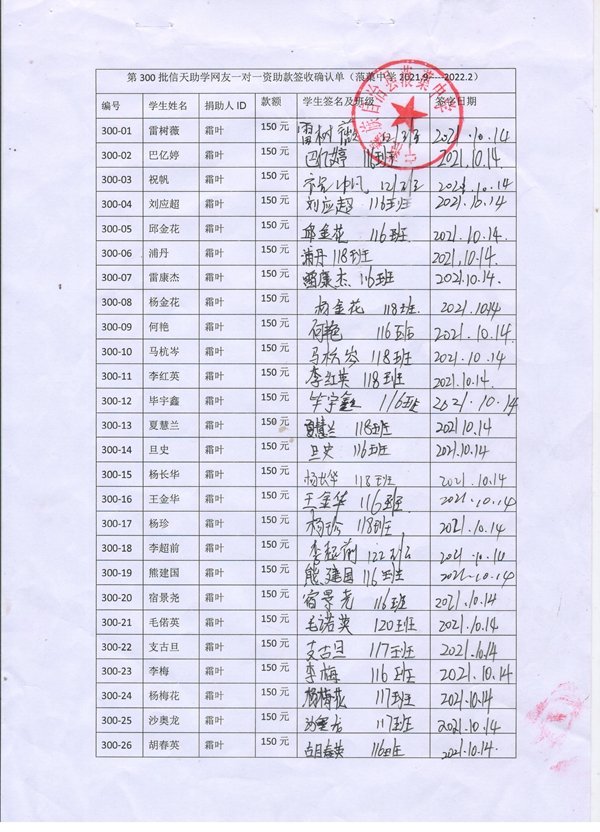 第 300 批信天助学网友一对一资助款签收确认单（蒗蕖中学 2021.9-----2022.2）
编号 学生姓名 捐助人 ID 款额 学生签名及班级 签字日期
300-01 雷树薇 霜叶 150 元 雷树薇 2021.10.14
300-02 巴亿婷 霜叶 150 元 巴亿婷 116班 2021.10.14
300-03 祝帆 霜叶 150 元 2021.10.14
300-04 刘应超 霜叶 150 元 刘应超 116班 2021.10.14
300-05 邱金花 霜叶 150 元 邱金花 116班 2021.10.14.
300-06 浦丹 霜叶 150 元 浦丹 118班 2021.10.14.
300-07 雷康杰 霜叶 150 元 雷康杰 116班 2021.10.14.
300-08 杨金花 霜叶 150 元 杨金花 118班. 2021.10.14
300-09 何艳 霜叶 150 元 何艳 116班 2021.10.14
300-10 马杭岑 霜叶 150 元 马杭岑 118班 2021.10.14
300-11 李红英 霜叶 150 元 李红英 118班 2021.10.14
300-12 毕宇鑫 霜叶 150 元 毕宇鑫 116班 2021.10.14
300-13 夏慧兰 霜叶 150 元 夏慧兰 118班 2021.10.14
300-14 旦史 霜叶 150 元 旦史 116班 2021.10.14
300-15 杨长华 霜叶 150 元 杨长华 118班 2021.10.14
300-16 王金华 霜叶 150 元 王金华 116班 2021.10.14
300-17 杨珍 霜叶 150 元 杨珍 118班 2021.10.14
300-18 李超前 霜叶 150 元 李超前 122班 2021.10.14
300-19 熊建国 霜叶 150 元 熊建国 116班 2021.10.14
300-20 宿景尧 霜叶 150 元 宿景尧 116班 2021.10.14
300-21 毛偌英 霜叶 150 元 毛诺英 120班 2021.10.14
300-22 支古旦 霜叶 150 元 支古旦 117班 2021.10.14
300-23 李梅 霜叶 150 元 李梅 116班 2021.10.14
300-24 杨梅花 霜叶 150 元 杨梅花 117班 2021.10.14
300-25 沙奥龙 霜叶 150 元 沙奥龙 117班 2021.10.14
300-26 胡春英 霜叶 150 元 胡春英 116班 2021.10.14.